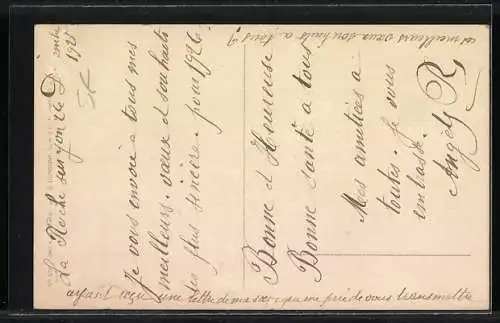 La Roche sur yon le
1925
Je vous envoie a tous mes
meilleurs vœux et souhaits
les plus sincère pour 1926
Bonne et Heureuse
Bonne santé a tous
Mes amitiées a
toutes. Je vous
embasse.
Angely R
ayant reçu une lettre de ma qui me prie de vous transmettre
ses meilleurs vœux souhaits a tous